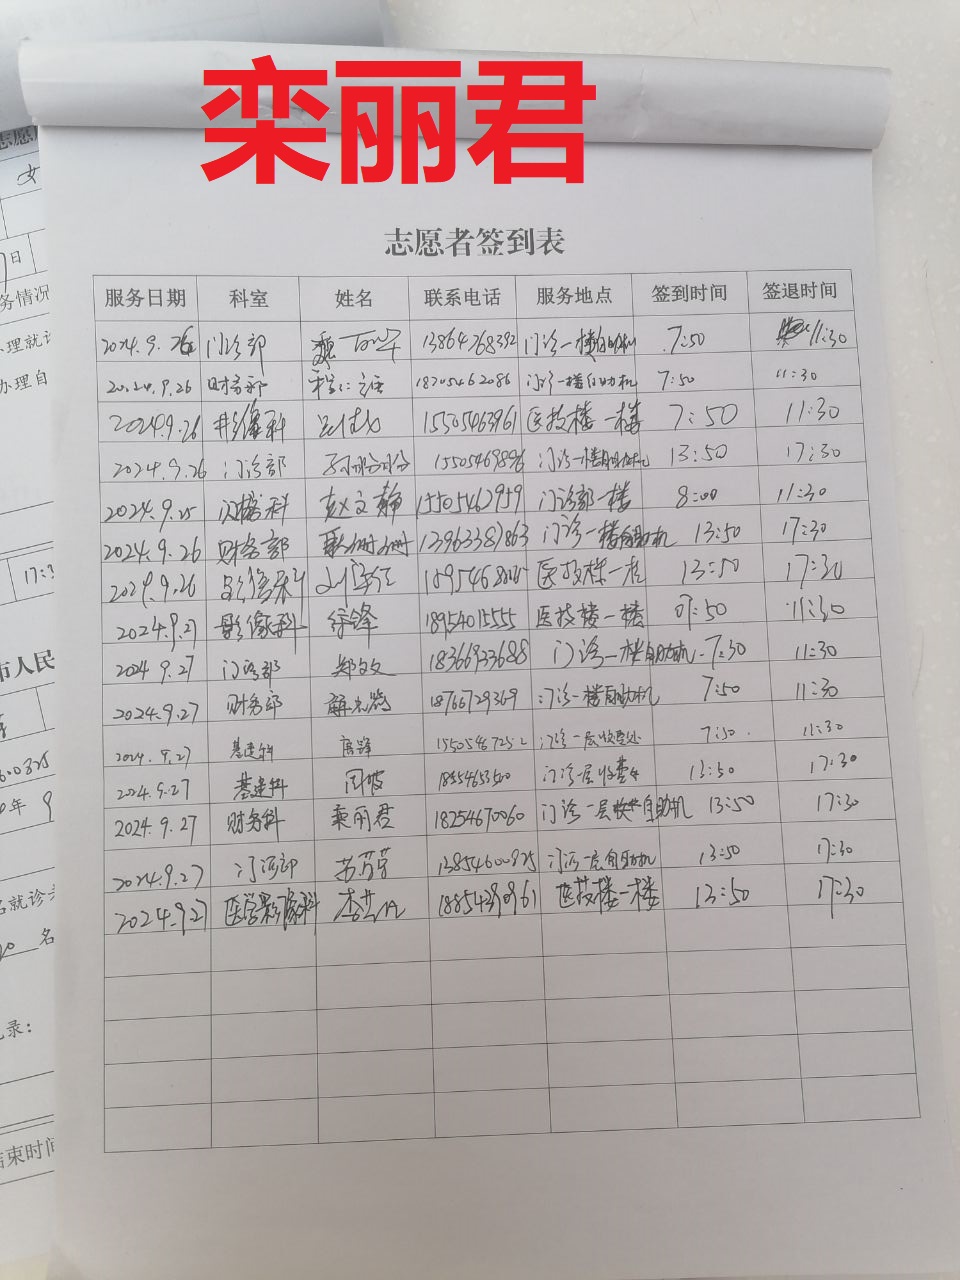 栾丽君
志愿者签到表
服务日期 科室 姓名 联系电话 服务地点 签到时间 签退时间
2024.9.26 门诊部 13864768392 门诊一楼自助机 7:50 11:30
2024.9.26 财务部 18705462086 门诊一楼自助机 7:50 11:30
2024.9.26 影像科 15505463961 医技楼一楼 7:50 11:30
2024.9.26 门诊部 15505469896 门诊一楼自助机 13:50 17:30
2024.9.25 赵文静 15505462959 门诊部一楼 8:00 11:30
2024.9.26 财务部 13963387863 门诊一楼自助机 13:50 17:30
2024.9.26 影像科 医技楼一楼 13:50 17:30
2024.9.27 影像科 徐锋 18954015555 医技楼一楼 07:50 11:30
2024.9.27 门诊部 郑文 18366933688 门诊一楼自助机 7:30 11:30
2024.9.27 财务部 18766729369 门诊一楼自助机 7:50 11:30
2024.9.27 基建科 高锋 15505467252 门诊一层收费处 7:50 11:30
2024.9.27 基建科 周波 门诊一层收费 13:50 17:30
2024.9.27 财务科 栾丽君 18254670060 门诊一层 自助机 13:50 17:30
2024.9.27 门诊部 苏芳芳 13854600825 门诊一层自助机 13:50 17:30
2024.9.27 医学影像科 18854290961 医技楼一楼 13:50 17:30
女
日
务情况
办理自
17:3
市人民
年 9
名就诊
名
录：
结束时间